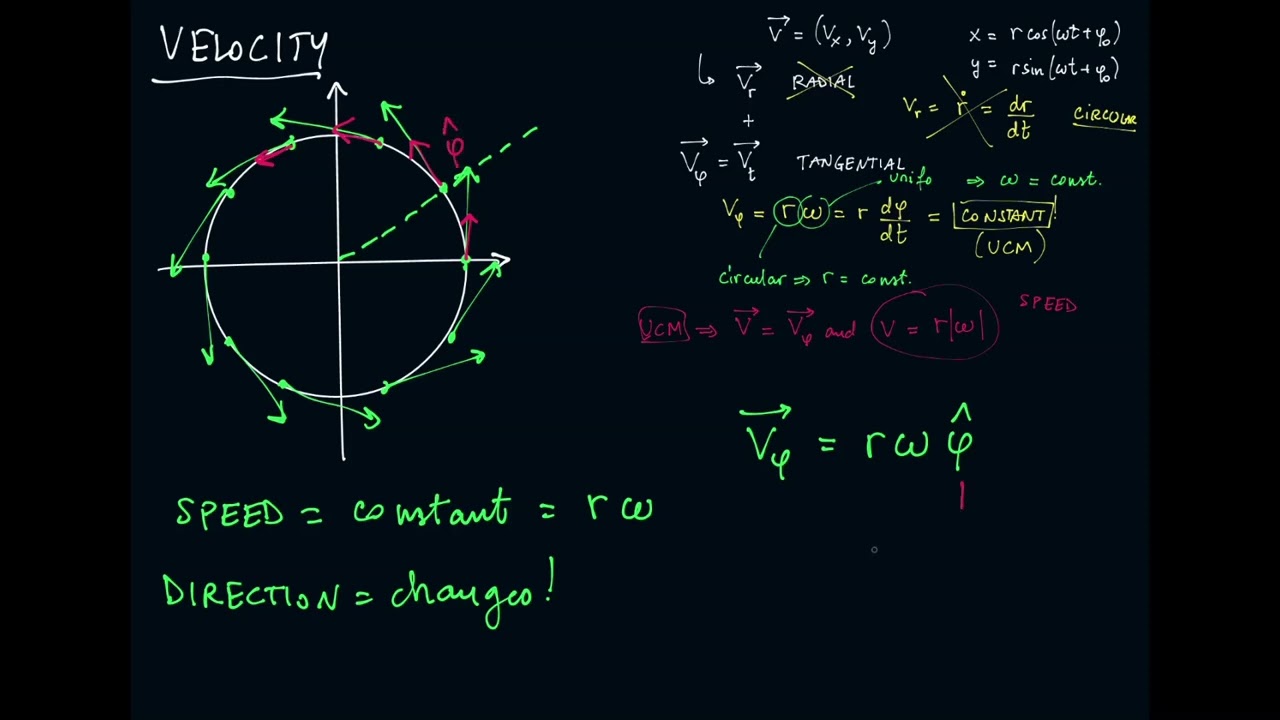 VELOCITY
V = (Vx, Vy)
x = r cos(ωt + φ₀)
y = r sin(ωt + φ₀)
↳ Vr RADIAL
Vr = ṙ = dr/dt CIRCULAR
+
Vφ = Vt TANGENTIAL
φ̂
unifo ⇒ ω = const.
Vφ = r ω = r dφ/dt = CONSTANT!
(UCM)
circular ⇒ r = const.
UCM ⇒ V = Vφ and V = r|ω| SPEED
Vφ = r ω φ̂
SPEED = constant = r ω
DIRECTION = changes!